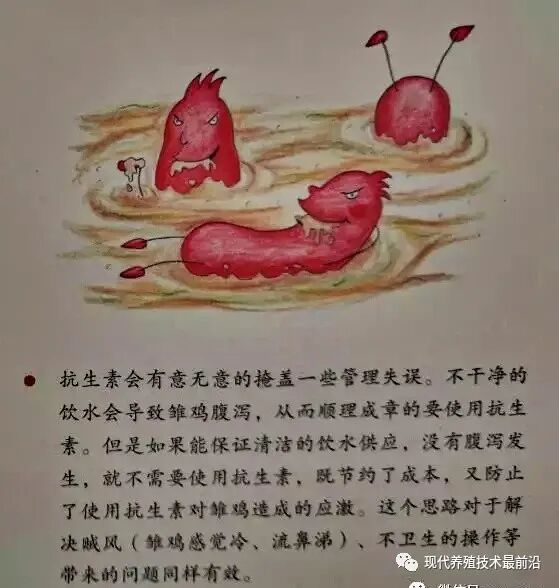 抗生素会有意无意的掩盖一些管理失误。不干净的
饮水会导致雏鸡腹泻，从而顺理成章的要使用抗生
素。但是如果能保证清洁的饮水供应，没有腹泻发
生，就不需要使用抗生素，既节约了成本，又防止
了使用抗生素对雏鸡造成的应激。这个思路对于解
决贼风（雏鸡感觉冷、流鼻涕）、不卫生的操作等
带来的问题同样有效。
现代养殖技术最前沿